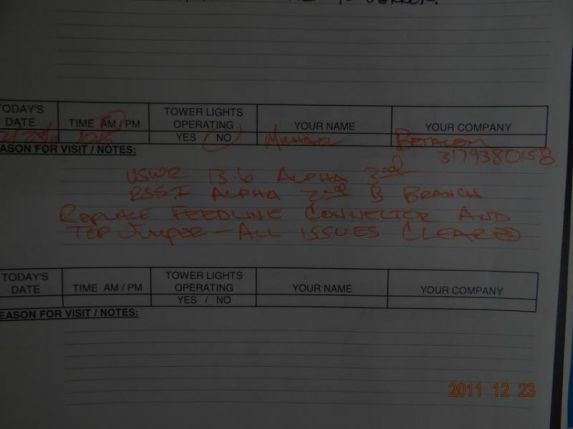 TODAY'S DATE TIME AM / PM TOWER LIGHTS OPERATING YOUR NAME YOUR COMPANY
YES / NO
3179380158
EASON FOR VISIT / NOTES:
VSWR 13.6 ALPHA 2nd
RSSI ALPHA 2nd B BRANCH
REPLACE FEEDLINE CONNECTOR AND
TOP JUMPER - ALL ISSUES CLEARED
TODAY'S DATE TIME AM / PM TOWER LIGHTS OPERATING YOUR NAME YOUR COMPANY
YES / NO
EASON FOR VISIT / NOTES:
2011 12 23